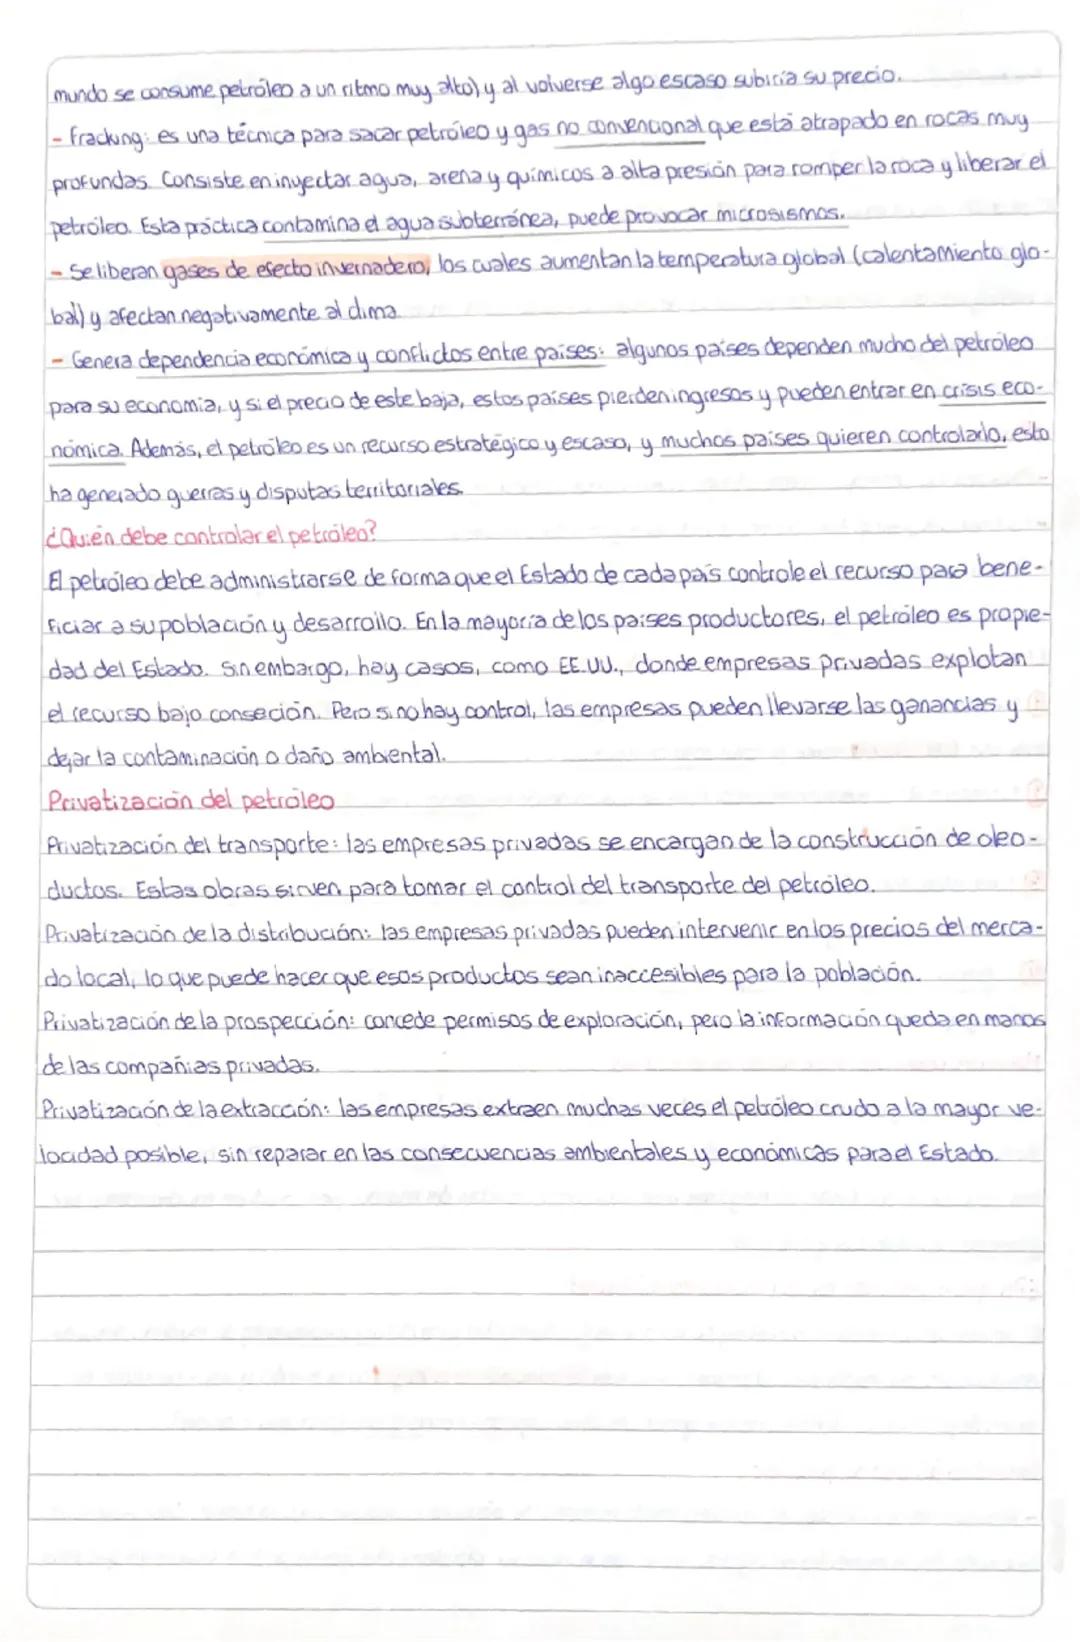 mundo se consume petróleo a un ritmo muy alto) y al volverse algo escaso subiría su precio.
- Fracking: es una técnica para sacar petróleo y gas no convencional que está atrapado en rocas muy
profundas. Consiste en inyectar agua, arena y químicos a alta presión para romper la roca y liberar el
petróleo. Esta práctica contamina el agua subterránea, puede provocar microsismos.
- Se liberan gases de efecto invernadero, los cuales aumentan la temperatura global (calentamiento glo-
bal) y afectan negativamente al clima
- Genera dependencia económica y conflictos entre países: algunos países dependen mucho del petróleo
para su economía, y si el precio de este baja, estos países pierden ingresos y pueden entrar en crisis eco-
nómica. Además, el petróleo es un recurso estratégico y escaso, y muchos países quieren controlarlo, esto
ha generado guerras y disputas territoriales.
¿Quién debe controlar el petróleo?
El petróleo debe administrarse de forma que el Estado de cada país controle el recurso para bene-
ficiar a su población y desarrollo. En la mayoría de los países productores, el petróleo es propie-
dad del Estado. Sin embargo, hay casos, como EE.UU., donde empresas privadas explotan
el recurso bajo conseción. Pero si no hay control, las empresas pueden llevarse las ganancias y
dejar la contaminación o daño ambiental.
Privatización del petróleo
Privatización del transporte: las empresas privadas se encargan de la construcción de oleo-
ductos. Estas obras sirven para tomar el control del transporte del petróleo.
Privatización de la distribución: las empresas privadas pueden intervenir en los precios del merca-
do local, lo que puede hacer que esos productos sean inaccesibles para la población.
Privatización de la prospección: concede permisos de exploración, pero la información queda en manos
de las compañías privadas.
Privatización de la extracción: las empresas extraen muchas veces el petróleo crudo a la mayor ve-
locidad posible, sin reparar en las consecuencias ambientales y económicas para el Estado.